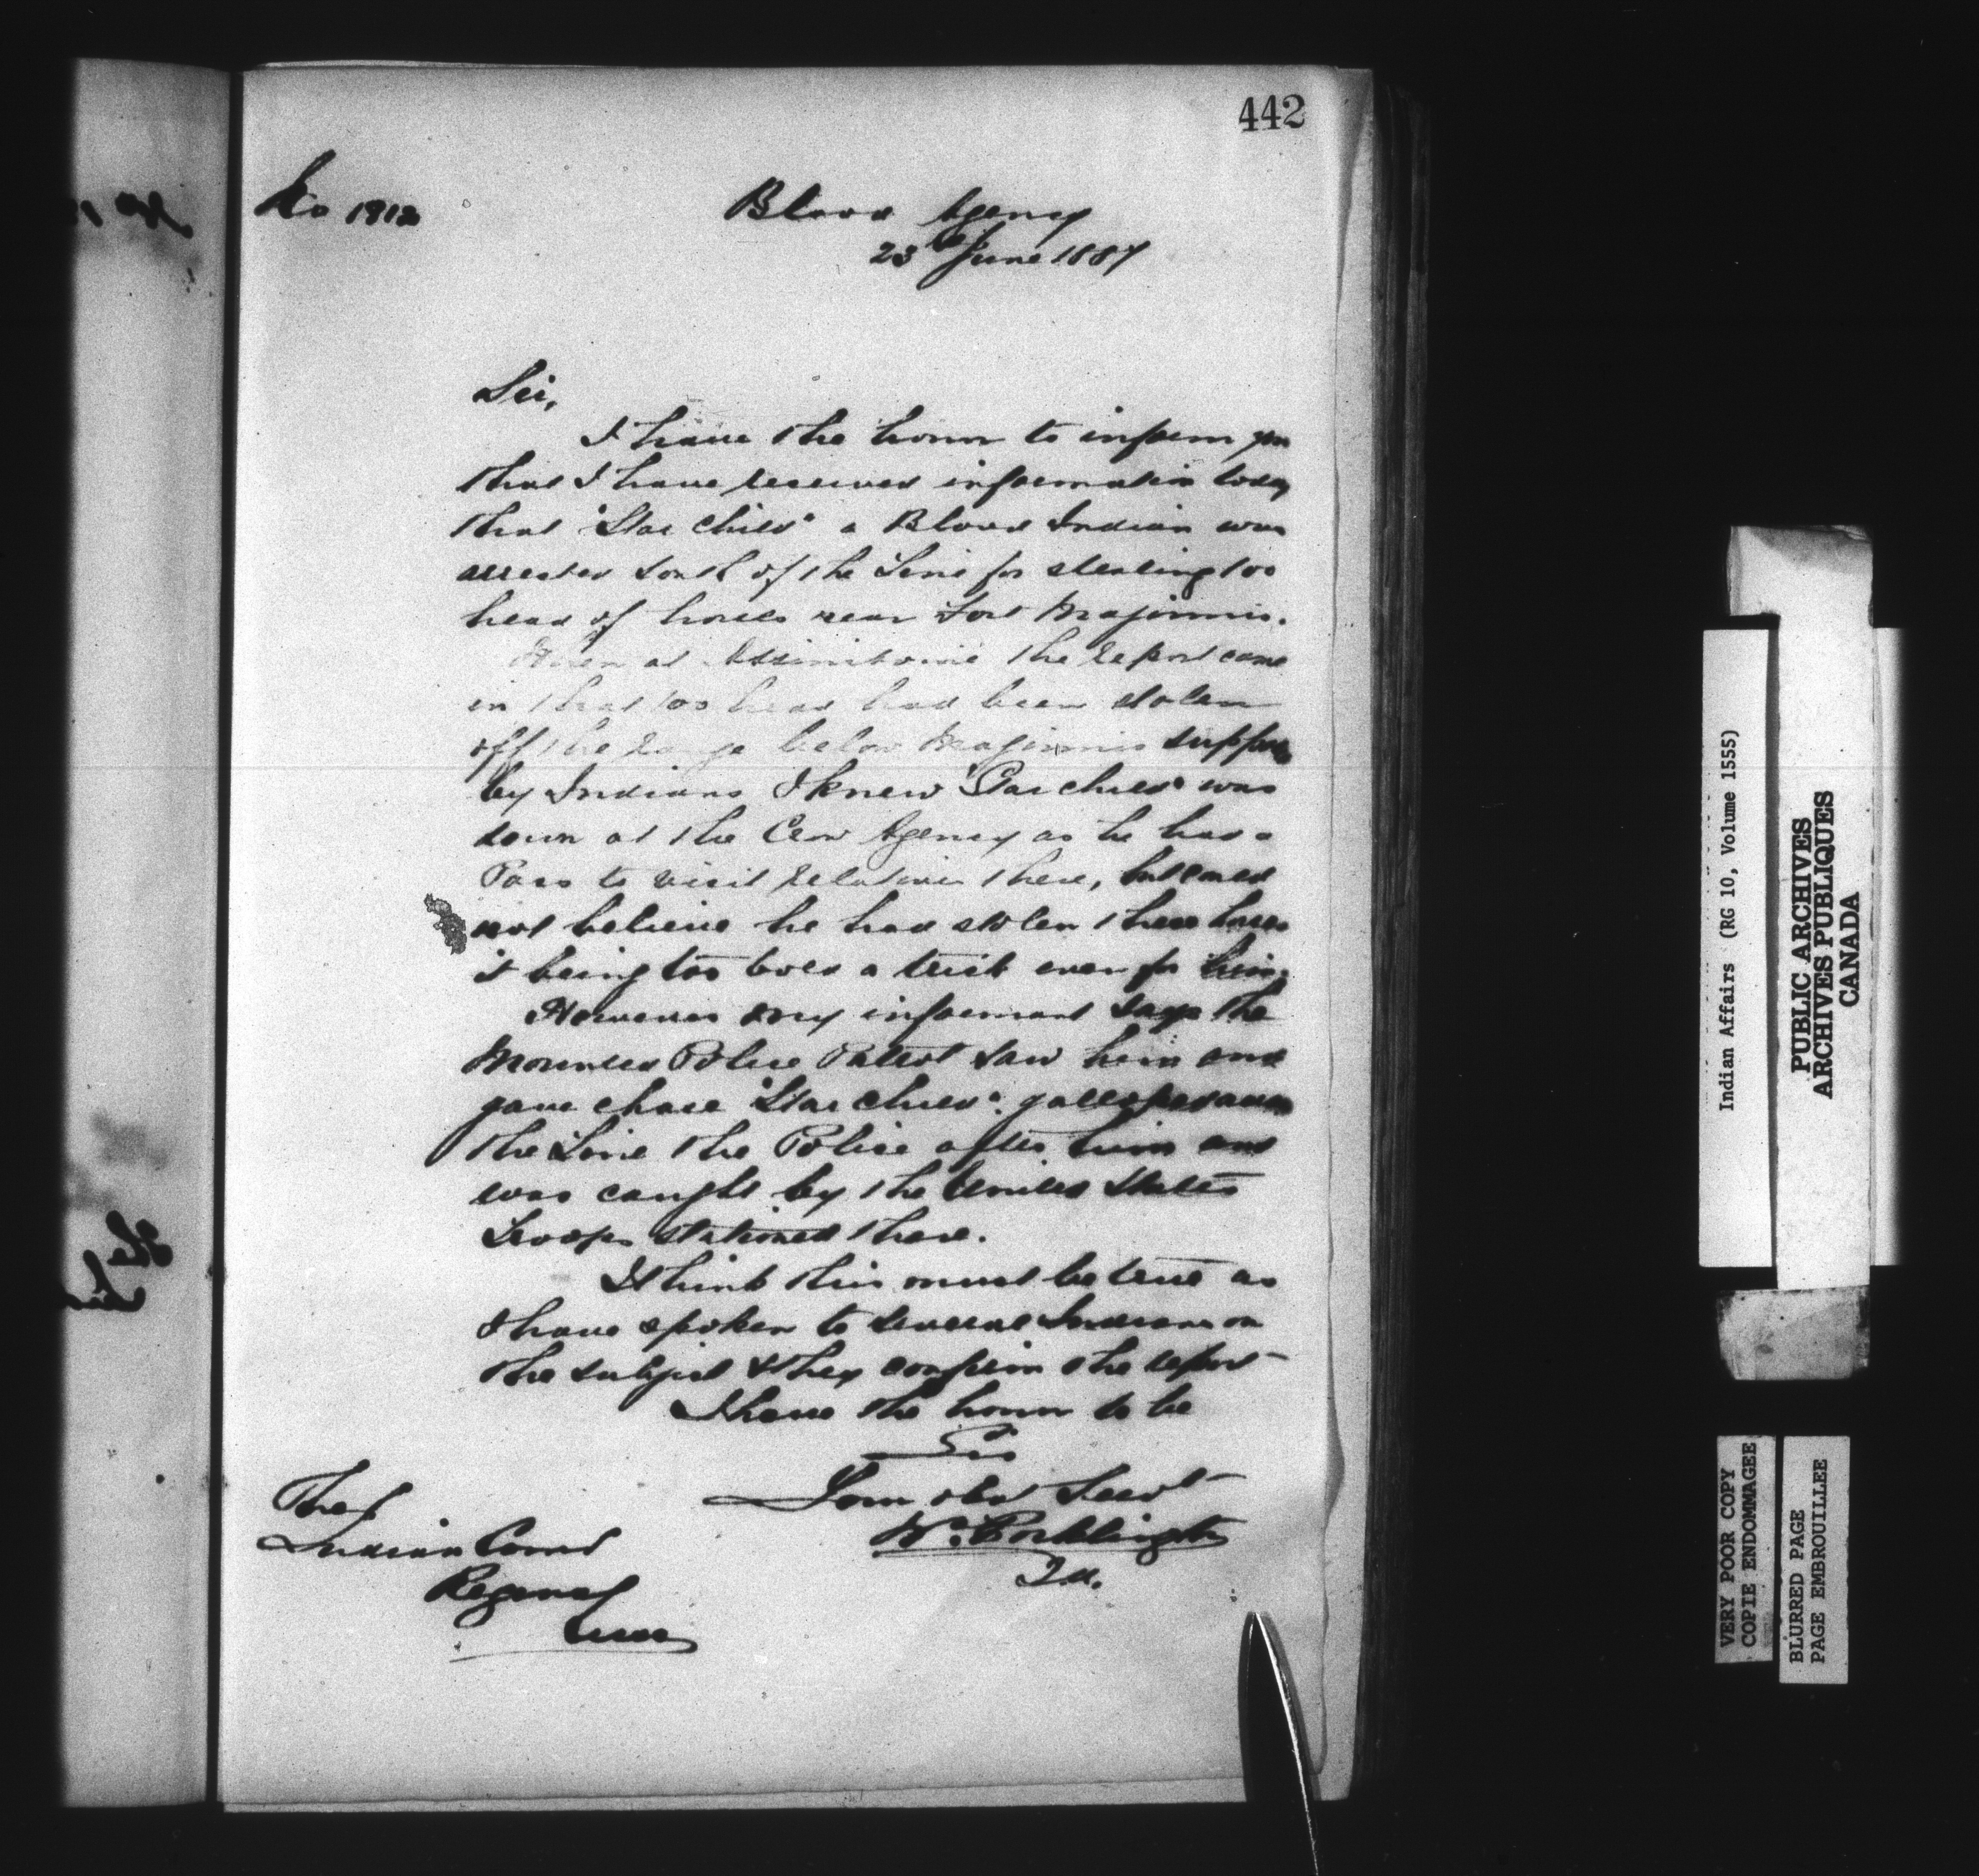 442
No 1912
Blood Agency
23rd June 1887
Sir,
I have the honor to inform you
that I have received information today
that "Star Child" a Blood Indian was
arrested South of the Line for stealing 100
head of horses near Fort Maginnis.
When at Assiniboine the report came
in that 100 head had been stolen
off the range below Maginnis supposed
by Indians I knew "Star Child" was
down at the Crow Agency as he had a
Pass to visit relatives there, but could
not believe he had stolen these horses
it being too bold a trick even for him.
However my informant says the
Mounted Police Patrol saw him and
gave chase "Star Child" galloped across
the Line the Police after him and
was caught by the United States
Troops stationed there.
I think this must be true as
I have spoken to several Indians on
the subject & they confirm the report
I have the honor to be
Sir
Your obt Servt
Wm. Pocklington
I.A.
The
Indian Comr
Regina
Indian Affairs (RG 10, Volume 1555)
PUBLIC ARCHIVES
ARCHIVES PUBLIQUES
CANADA
VERY POOR COPY
COPIE ENDOMMAGEE
BLURRED PAGE
PAGE EMBROUILLEE